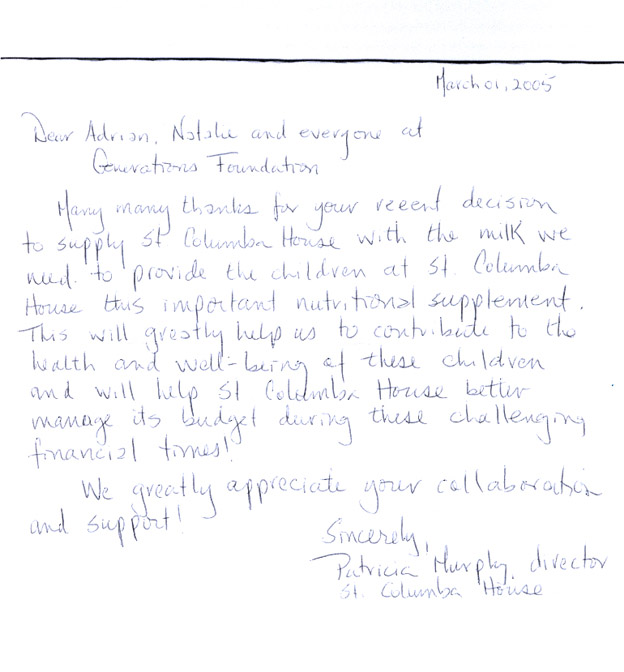 March 01, 2005
Dear Adrian, Natalie and everyone at
Generations Foundation
Many many thanks for your recent decision
to supply St Columba House with the milk we
need to provide the children at St. Columba
House this important nutritional supplement.
This will greatly help us to contribute to the
health and well-being of these children
and will help St Columba House better
manage its budget during these challenging
financial times!
We greatly appreciate your collaboration
and support!
Sincerely,
Patricia Murphy, director
St. Columba House